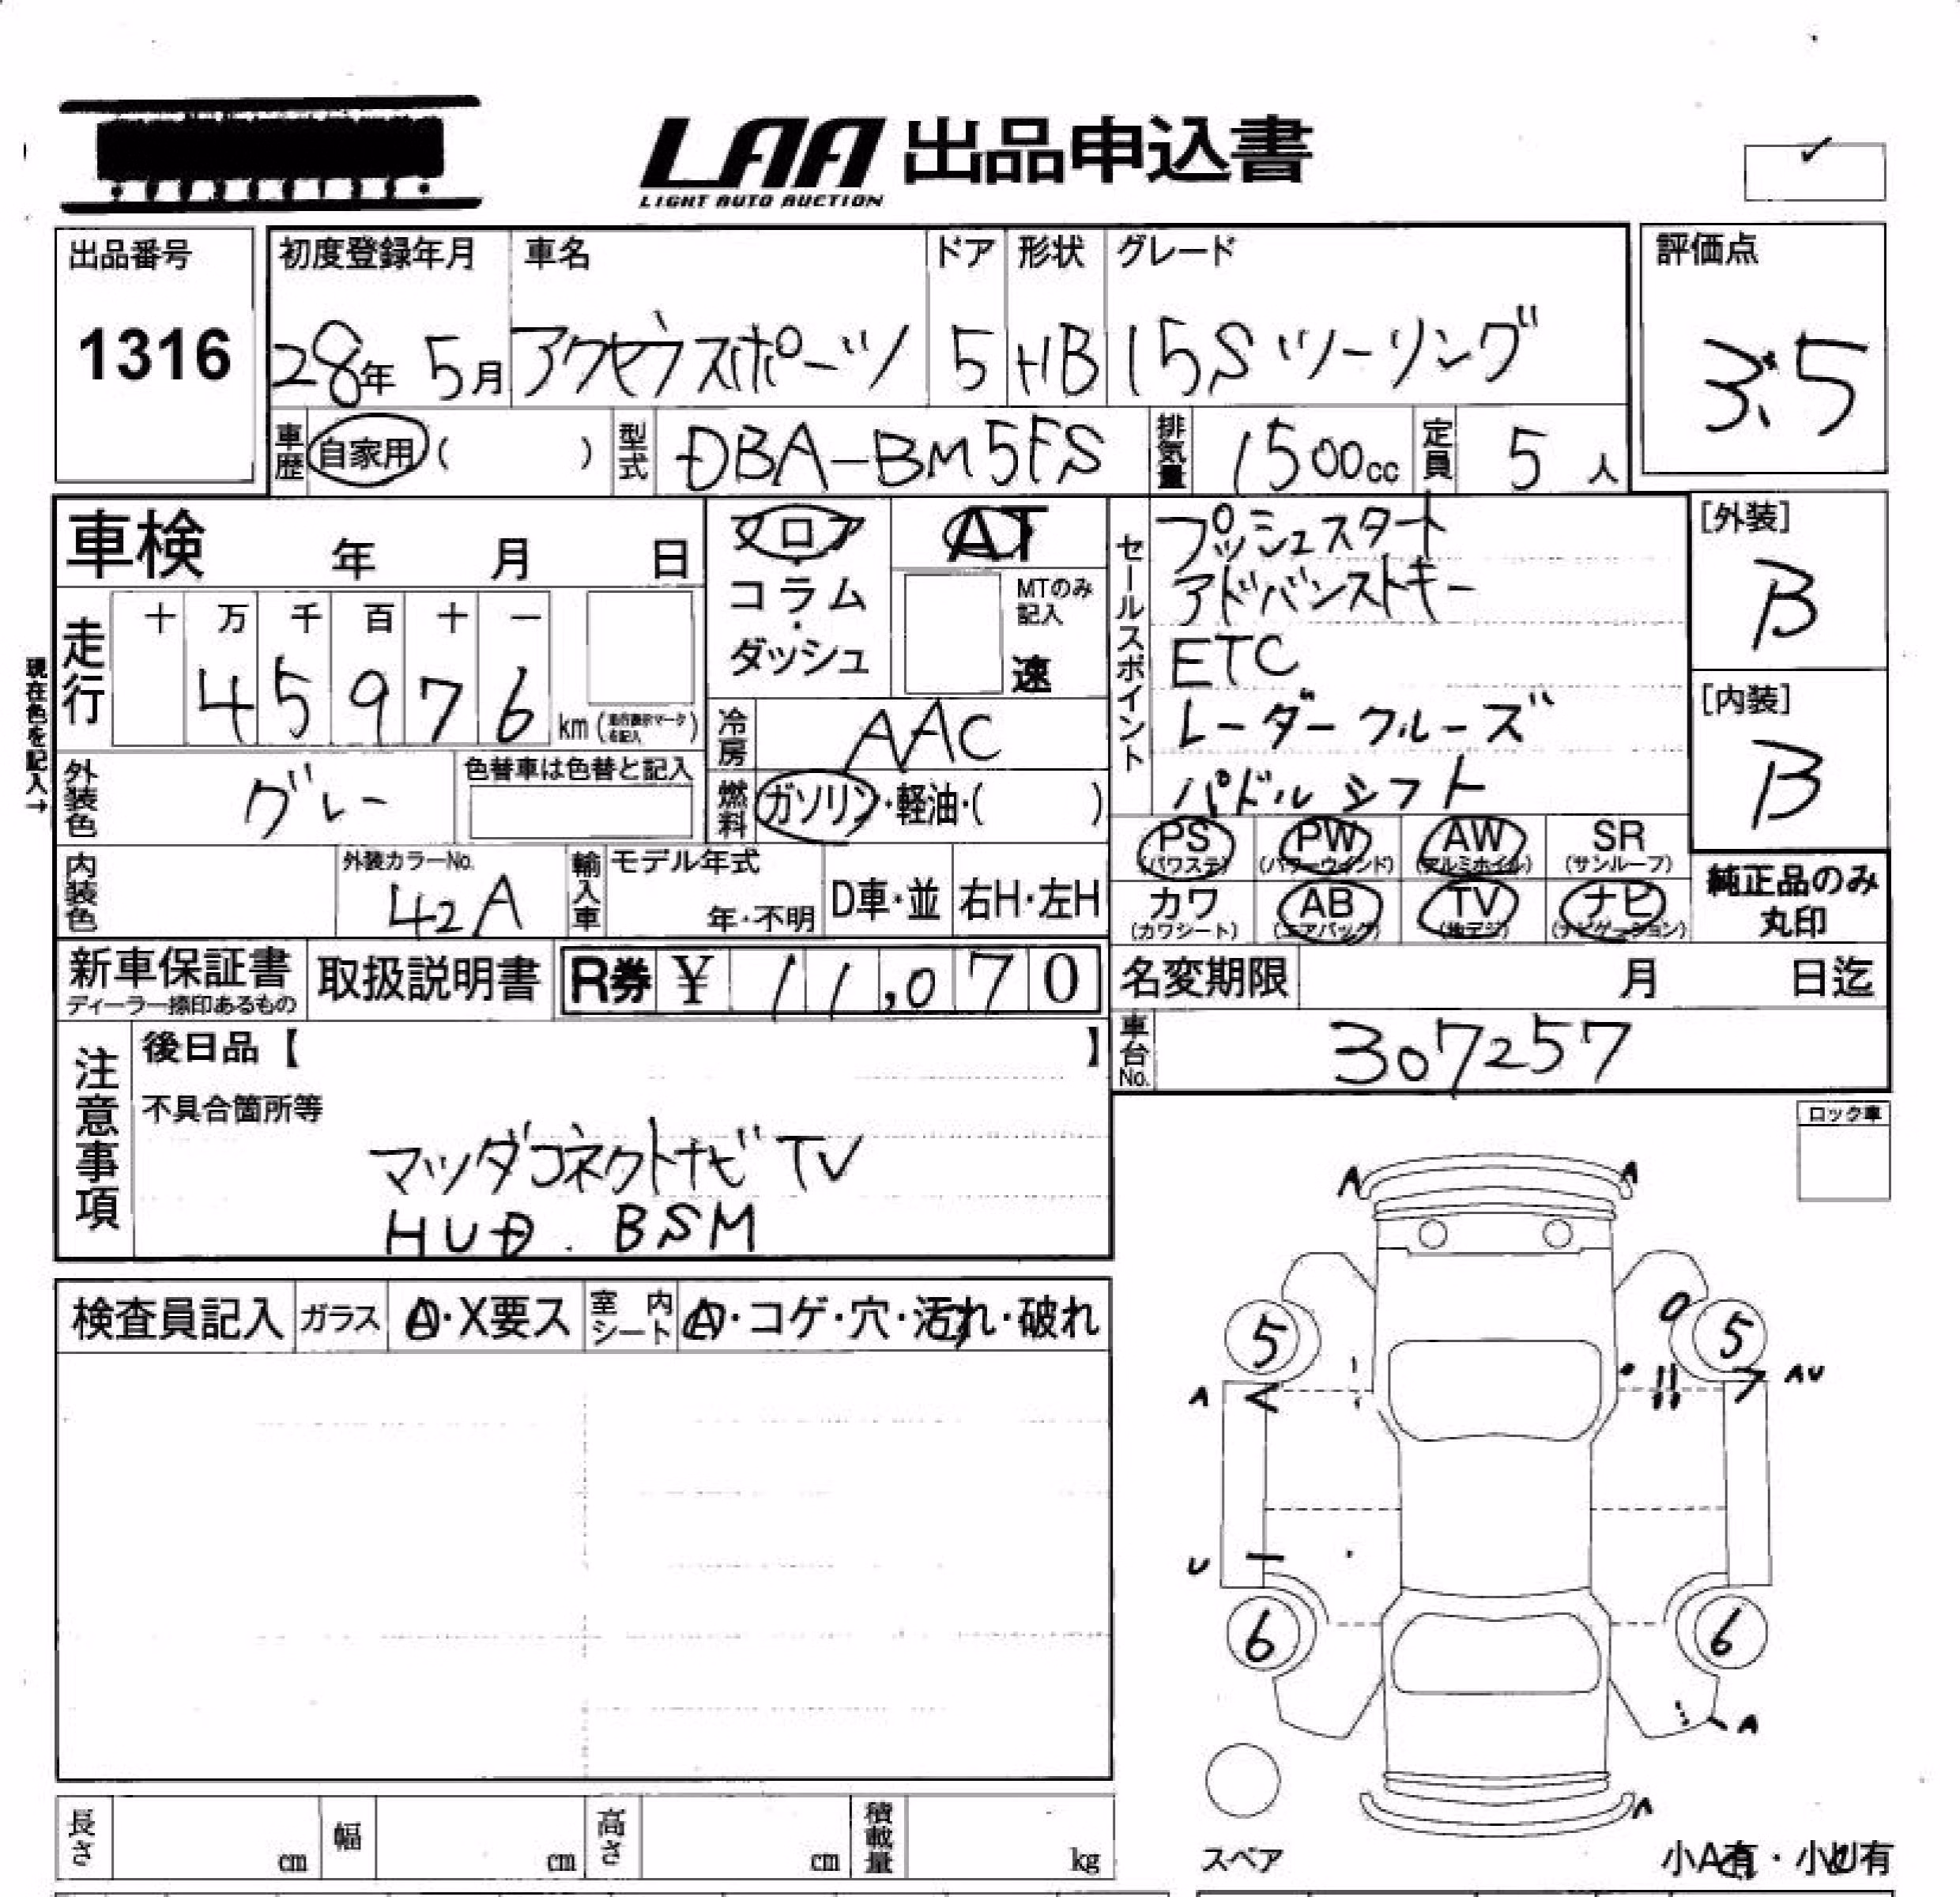 LAA 出品申込書
LIGHT AUTO AUCTION
出品番号
1316
初度登録年月 車名 ドア 形状 グレード
28年 5月 アクセラスポーツ 5 HB 15Sツーリング
評価点
3.5
車歴 自家用 ( ) 型式 DBA-BM5FS 排気量 1500cc 定員 5人
車検 年 月 日
フロア・コラム・ダッシュ
AT
MTのみ記入
速
セールスポイント
プッシュスタート
アドバンストキー
ETC
レーダークルーズ
パドルシフト
[外装]
B
[内装]
B
現在色を記入→
走行 十 万 千 百 十 一
45976 km
冷房 AAC
外装色 グレー 色替車は色替と記入
燃料 ガソリン・軽油・( )
内装色 外装カラーNo. 42A
輸入車 モデル年式 年・不明 D車・並 右H・左H
PS (パワステ) PW (パワーウインド) AW (アルミホイル) SR (サンルーフ)
カワ (カワシート) AB (エアバッグ) TV (地デジ) ナビ (ナビゲーション)
純正品のみ丸印
新車保証書 ディーラー捺印あるもの 取扱説明書 R券 ¥ 11,070
名変期限 月 日迄
車台No. 307257
注意事項
後日品【 】
不具合箇所等
マツダコネクトナビ TV
HUD. BSM
ロック車
検査員記入 ガラス A・X要ス 室内シート A・コゲ・穴・汚れ・破れ
A A
5 5
A AU
U
6 6
A
A
スペア
小A有・小U有
長さ cm 幅 cm 高さ cm 積載量 kg